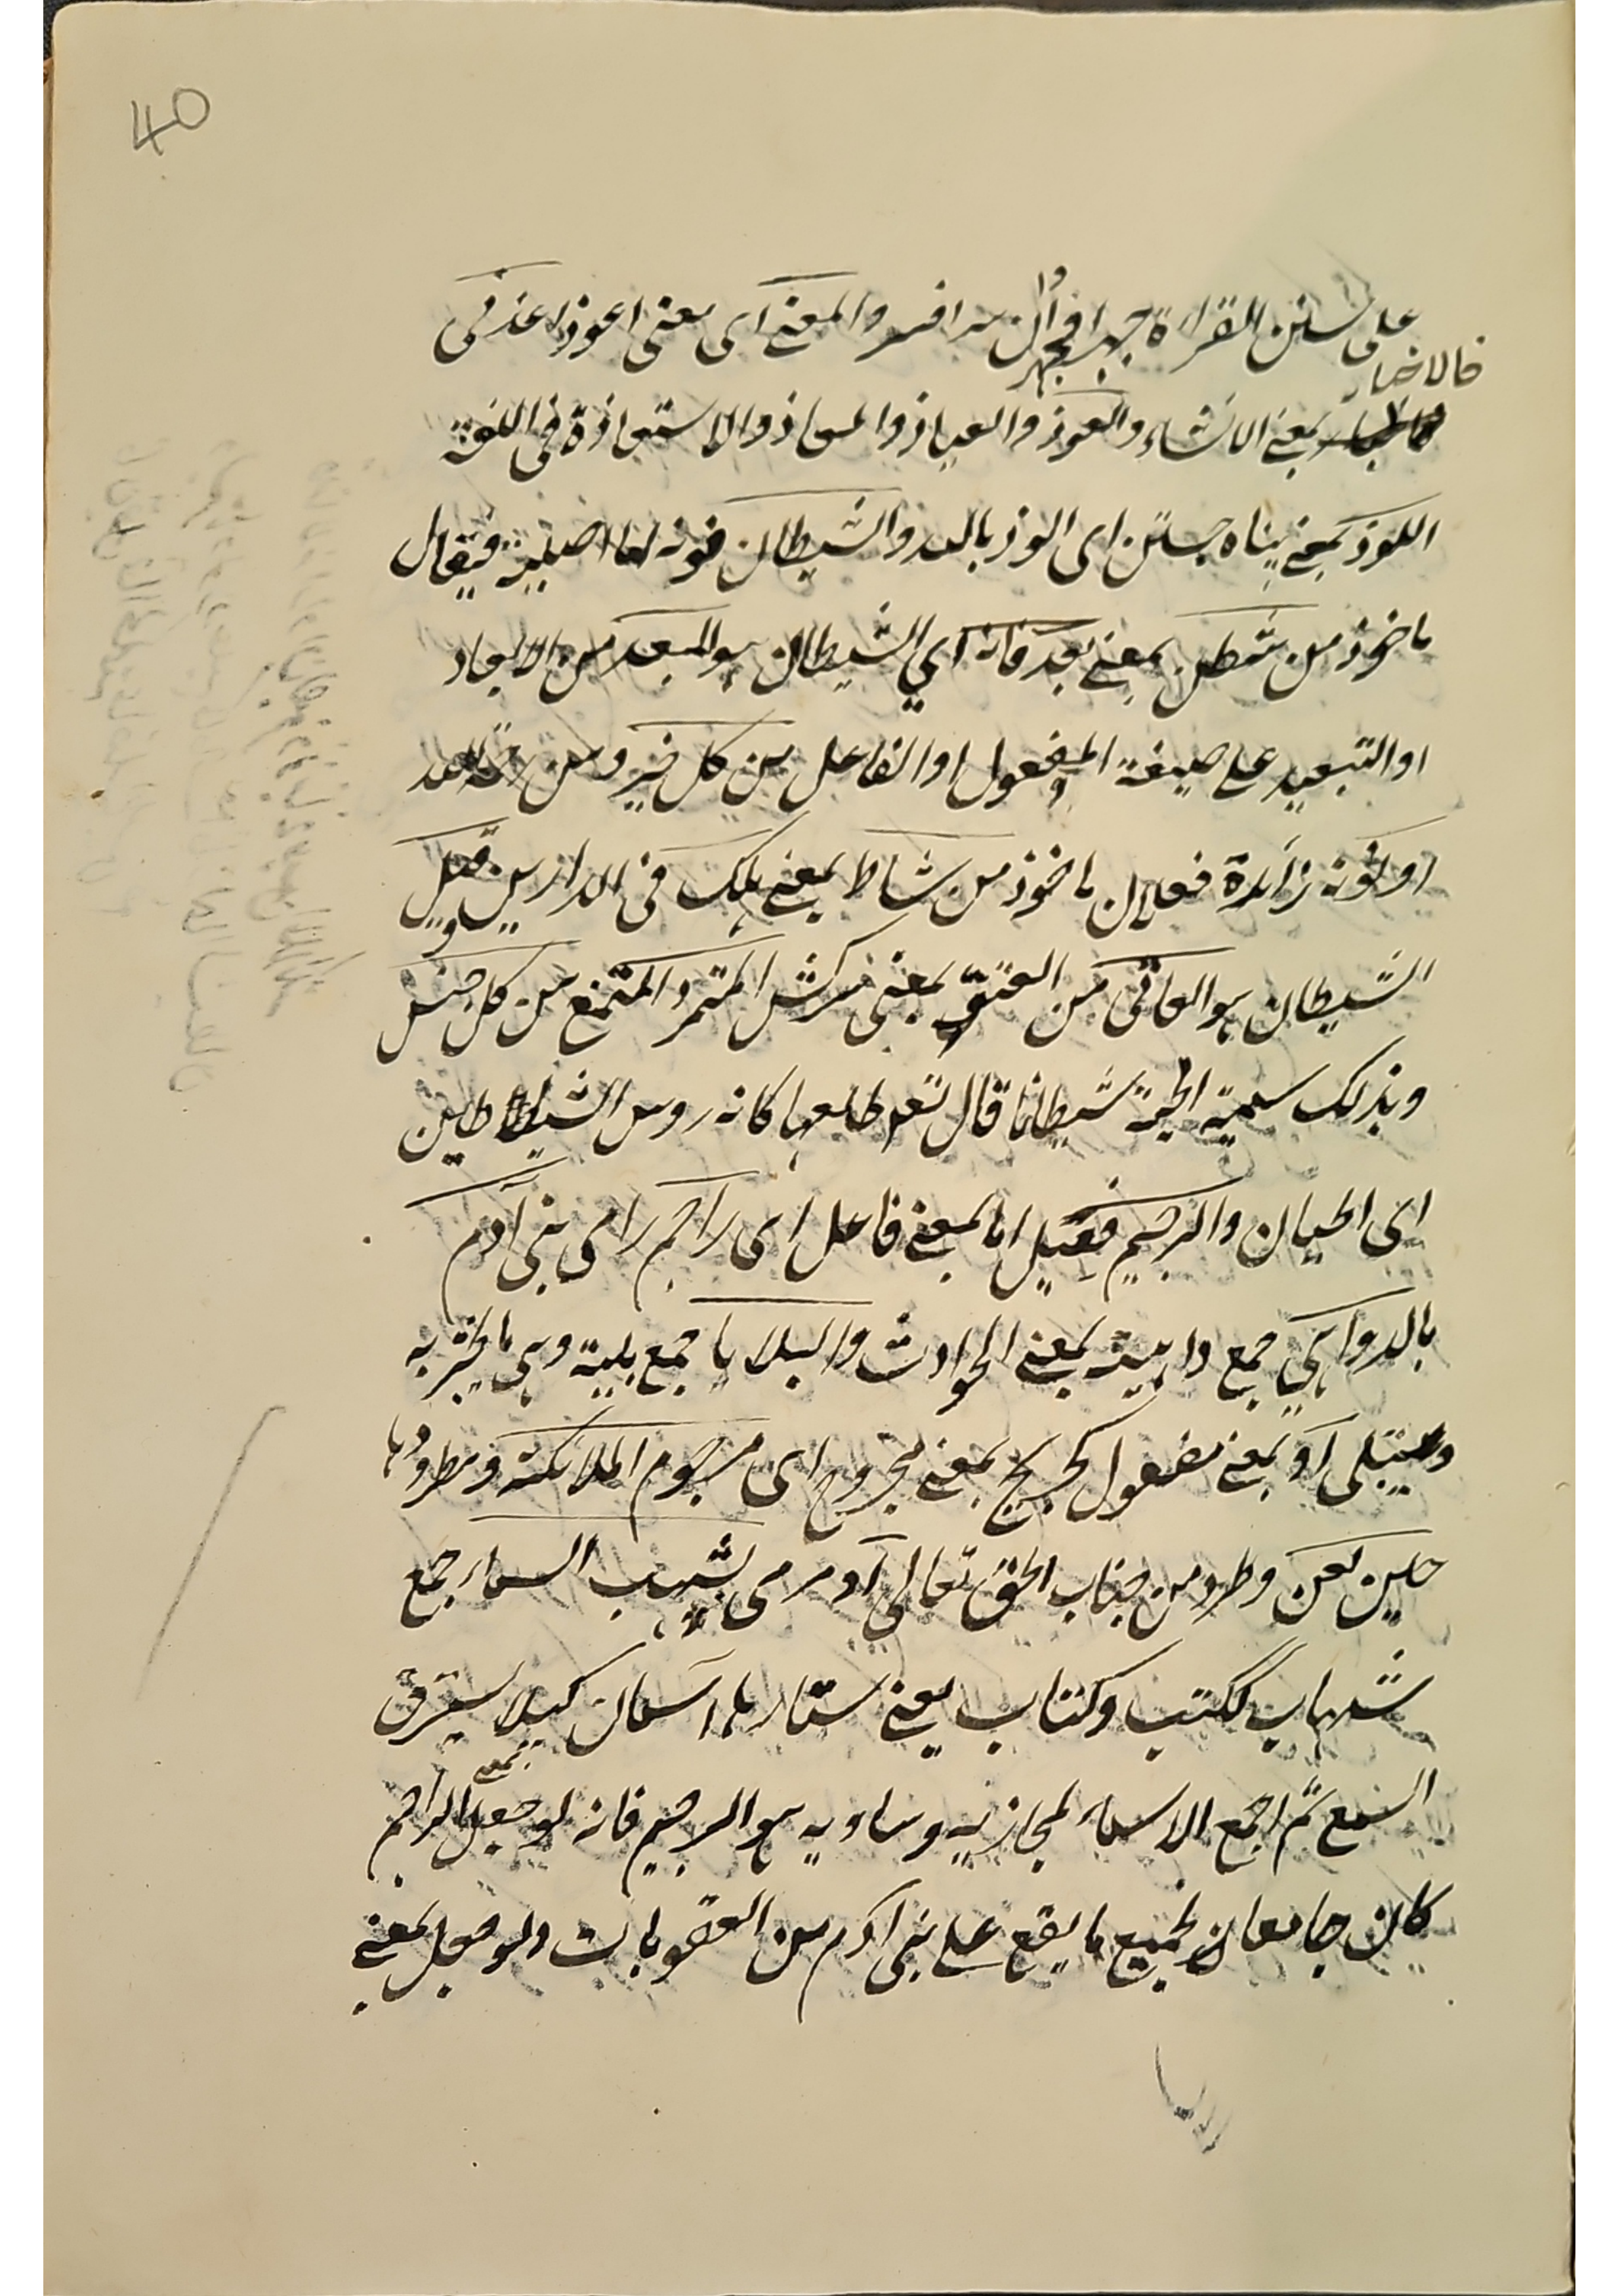 40
على سنن القراءة جهرا فجهر وان سرا فسر والمعنى اى معنى اعوذ اعذنى
فالاخبار
بمعنى الانشاء والعوذ والعياذ والمعاذ والاستعاذة فى اللغة
اللوذ بمعنى پناه جستن اى الوذ بالله والشيطان فنونه اما اصلية فيقال
ماخوذ من شطن بمعنى بعد فانه اي الشيطان هو المبعد من الابعاد
او التبعيد على صيغة المفعول او الفاعل من كل خير ومن رحمة الله
او نونه زائدة فعلان ماخوذ من شاط بمعنى هلك فى الدارين وقيل
الشيطان هو العاتى من العتو بمعنى سركش المتمرد المتمنع من كل جنس
وبذلك سمية الحية شيطانا قال تعه طلعها كانه روس الشياطين
اى الحيات والرجيم فعيل اما بمعنى فاعل اى راجم رامى بنى آدم
بالدواهي جمع داهية بمعنى الحوادث والبلايا جمع بلية وهى ما يختبر به
ويبتلى او بمعنى مفعول كجريح بمعنى مجروح اى مرجوم الملائكة ومطرودها
حين لعن وطرد من جناب الحق تعالى او مرمى بشهب السماء جمع
شهاب ككتب وكتاب يعنى ستارهاء آسمان كيلا يسترق
السمع ثم اجمع الاسماء لمجازيه ومساويه هو الرجيم فانه لو جعل بمعنى الراجم
كان جامعا لجميع ما يقع على بنى ادم من العقوبات ولو جعل بمعنى